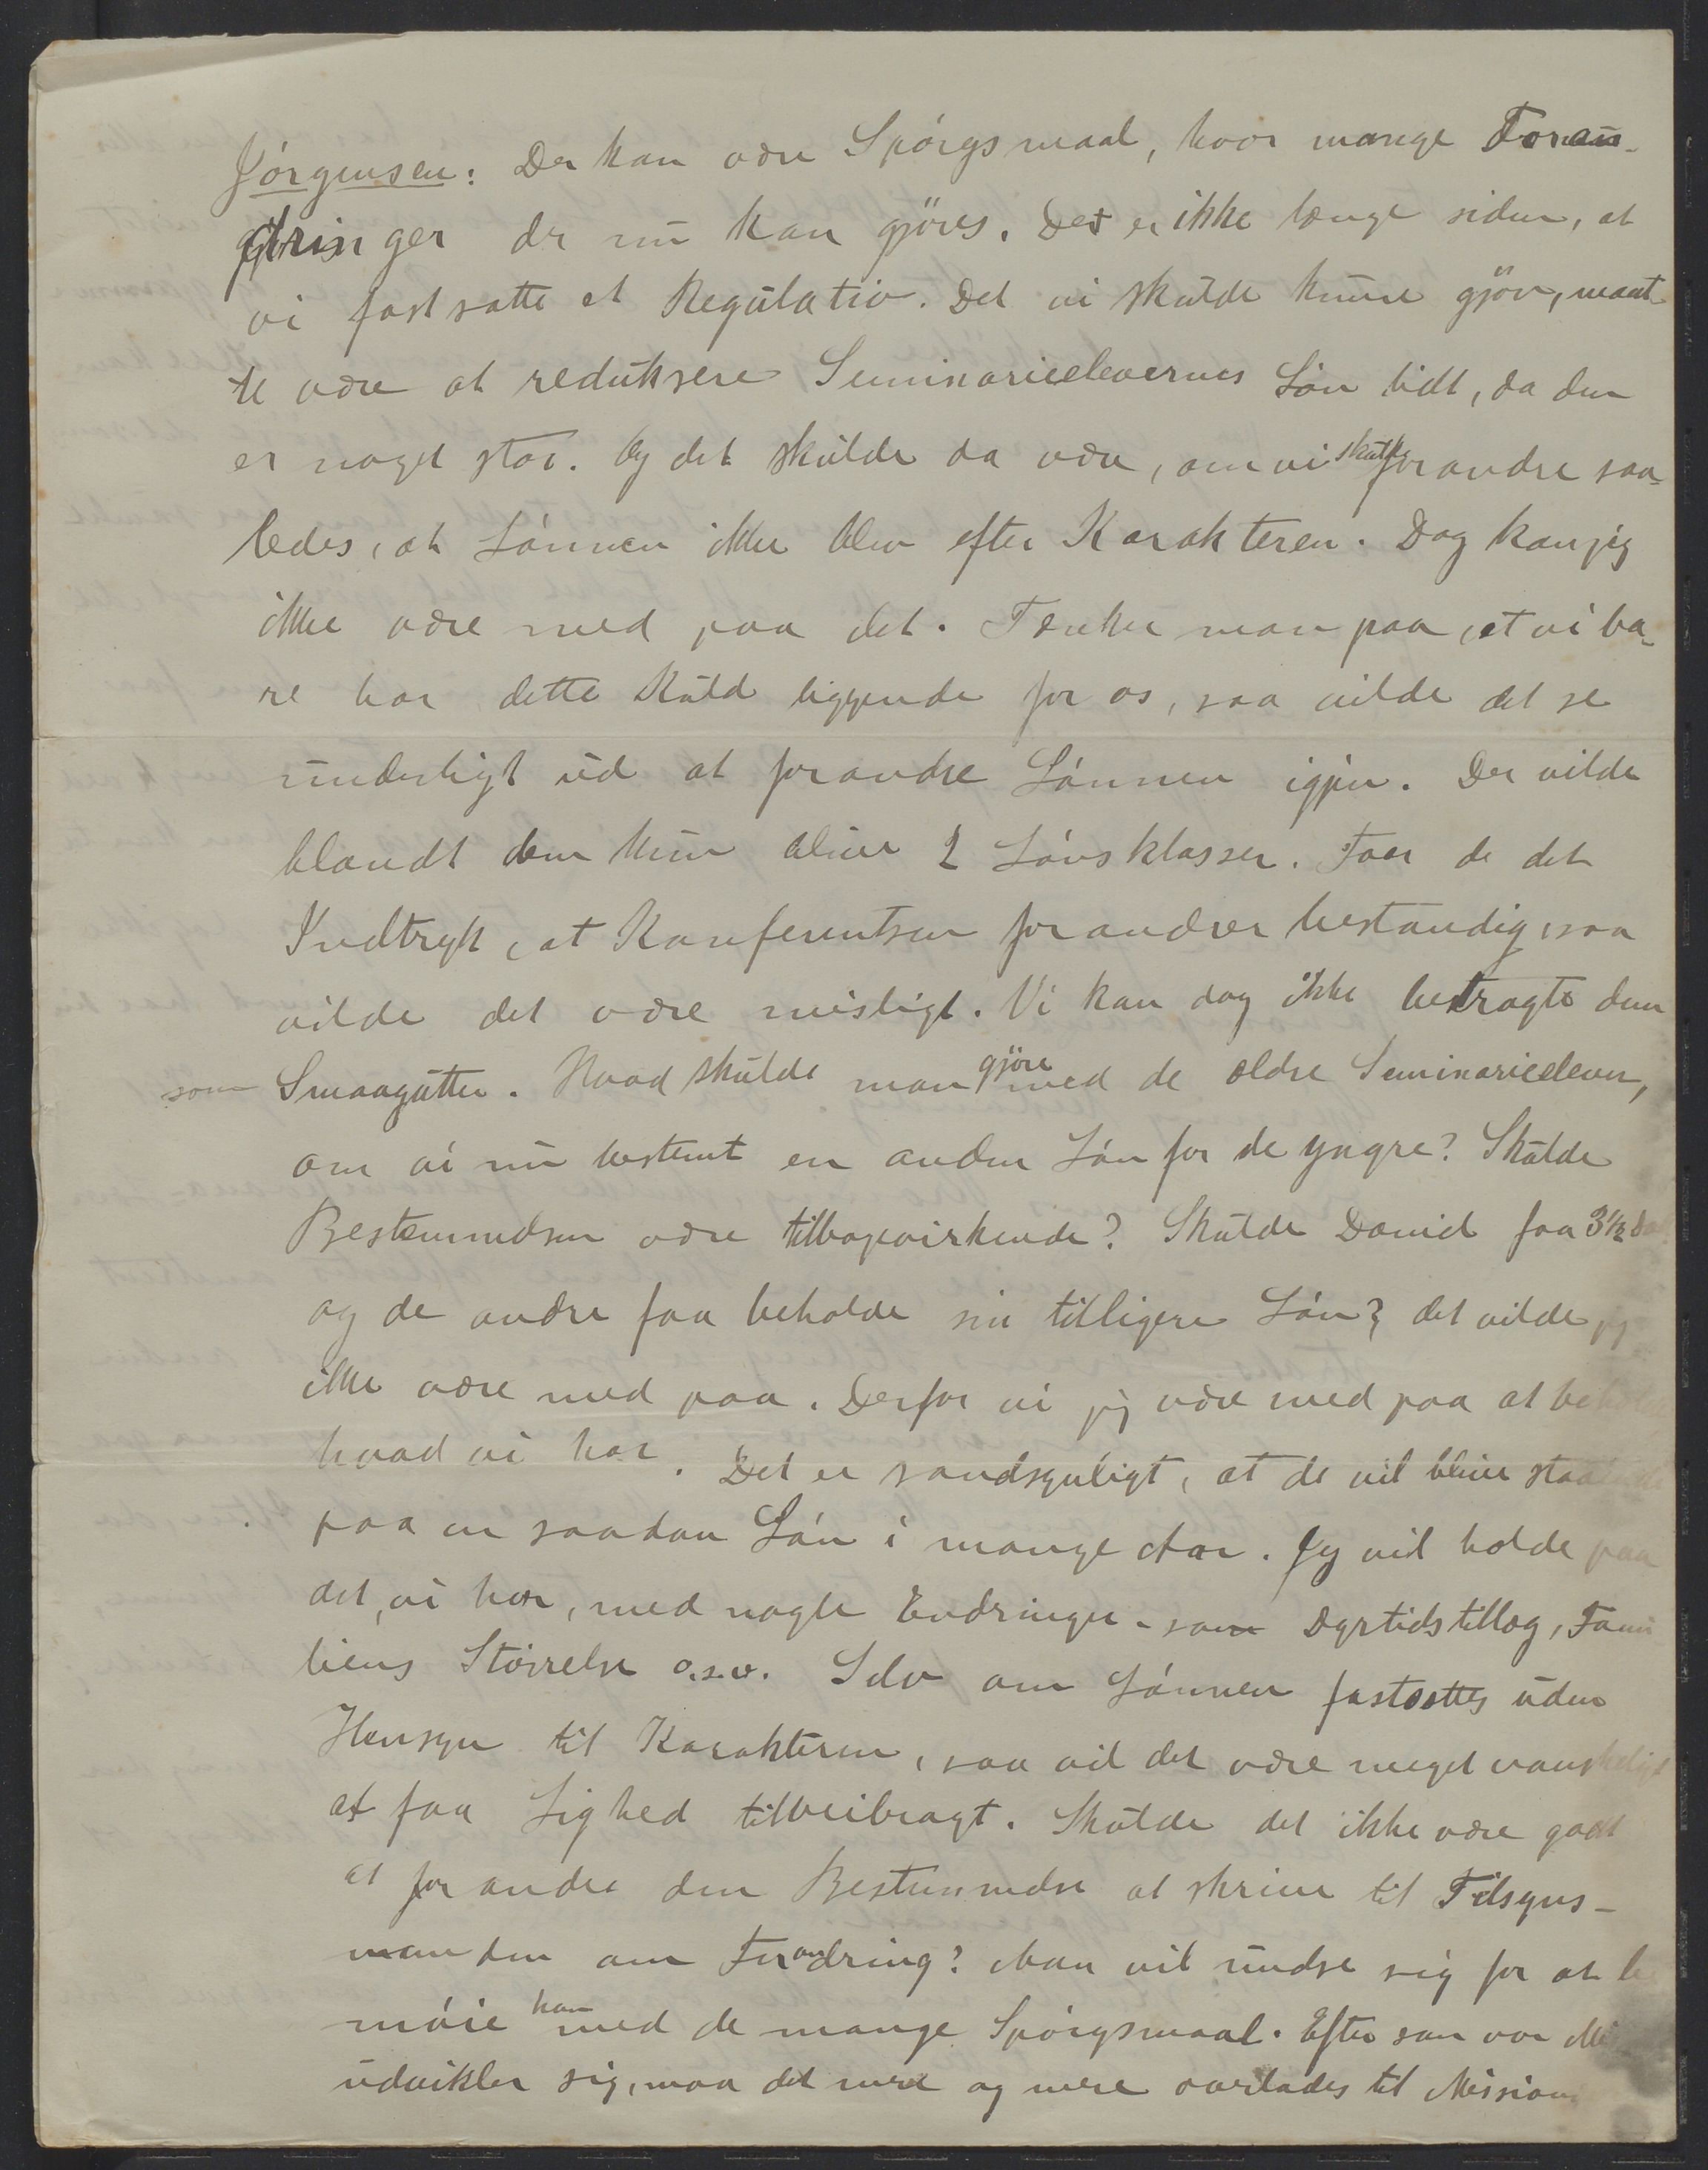 Jórgensen: Der kan være Spórgsmaal, hvor mange Foran-
dringer der nu kan gjöres. Det er ikke længe siden, at
vi fastsatte et Regulativ. Det vi skulde kunne gjöre, maat-
te være at reduksere Seminarieelevernes Lón lidt, da den
er noget stor. Og det skulde da være, om vi skulde forandre saa-
ledes, at Lónnen ikke blev efter Karakteren. Dog kan jeg
ikke være med paa det. Tænker man paa, at vi ba-
re har dette Kuld liggende for os, saa vilde det se
underligt ud at forandre Lónnen igjen. Der vilde
blandt dem kun blive 2 Lónsklasser. Faar de det
Indtryk, at Konferentsen forandrer bestandig, saa
vilde det være misligt. Vi kan dog ikke betragte dem
som Smaagutter. Hvad skulde man gjöre med de ældre Seminarieelever,
om vi nu bestemt en anden Lón for de yngre? Skulde
Bestemmelsen være tilbagevirkende? Skulde Daniel faa 3½
og de andre faa beholde sin tidligere Lón? det vilde jeg
ikke være med paa. Derfor vi jeg være med paa at beholde
hvad vi har. Det er sandsynligt, at de vil blive staaende
paa en saadan Lón i mange Aar. Jeg vil holde paa
det, vi har, med nogle Endringer - som Dyrtidstillæg, Fami
liens Stórrelse o.s.v. Selv om Lónnen fastsættes uden
Hensyn til Karakteren, saa vil det være meget vanskeligt
at faa Lighed tilveibragt. Skulde det ikke være godt
at forandre den Bestemmelse at skrive til Tilsyns-
manden om Forandring? Man vil undse sig for at be
móie ham med de mange Spórgsmaal. Efter som vor Mi
udvikler sig, maa det mere og mere overlades til Mission